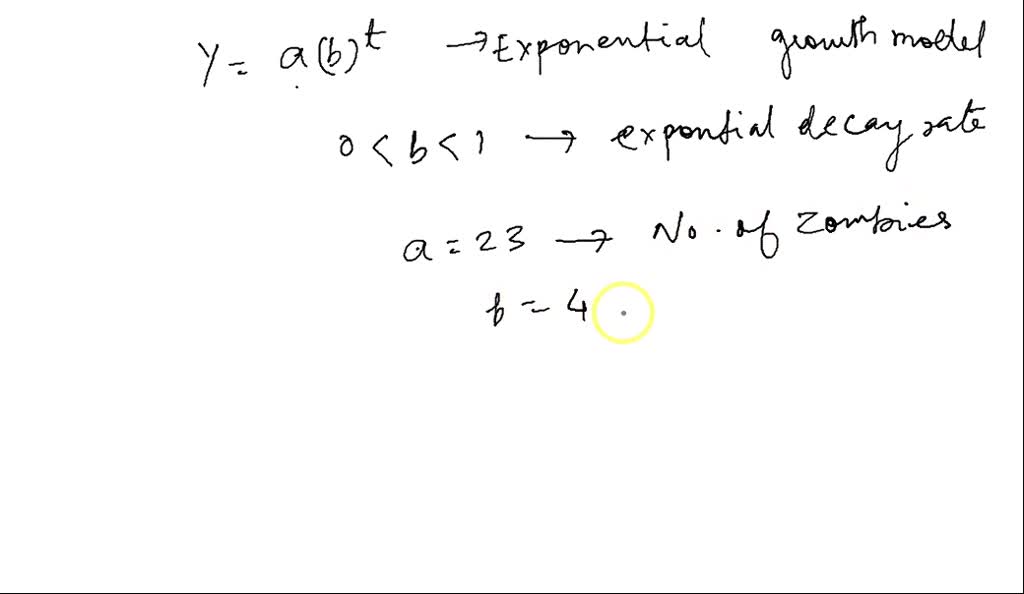 y = a(b)^t → Exponential growth model
0 < b < 1 → expontial decay rate
a = 23 → No. of zombies
b = 4